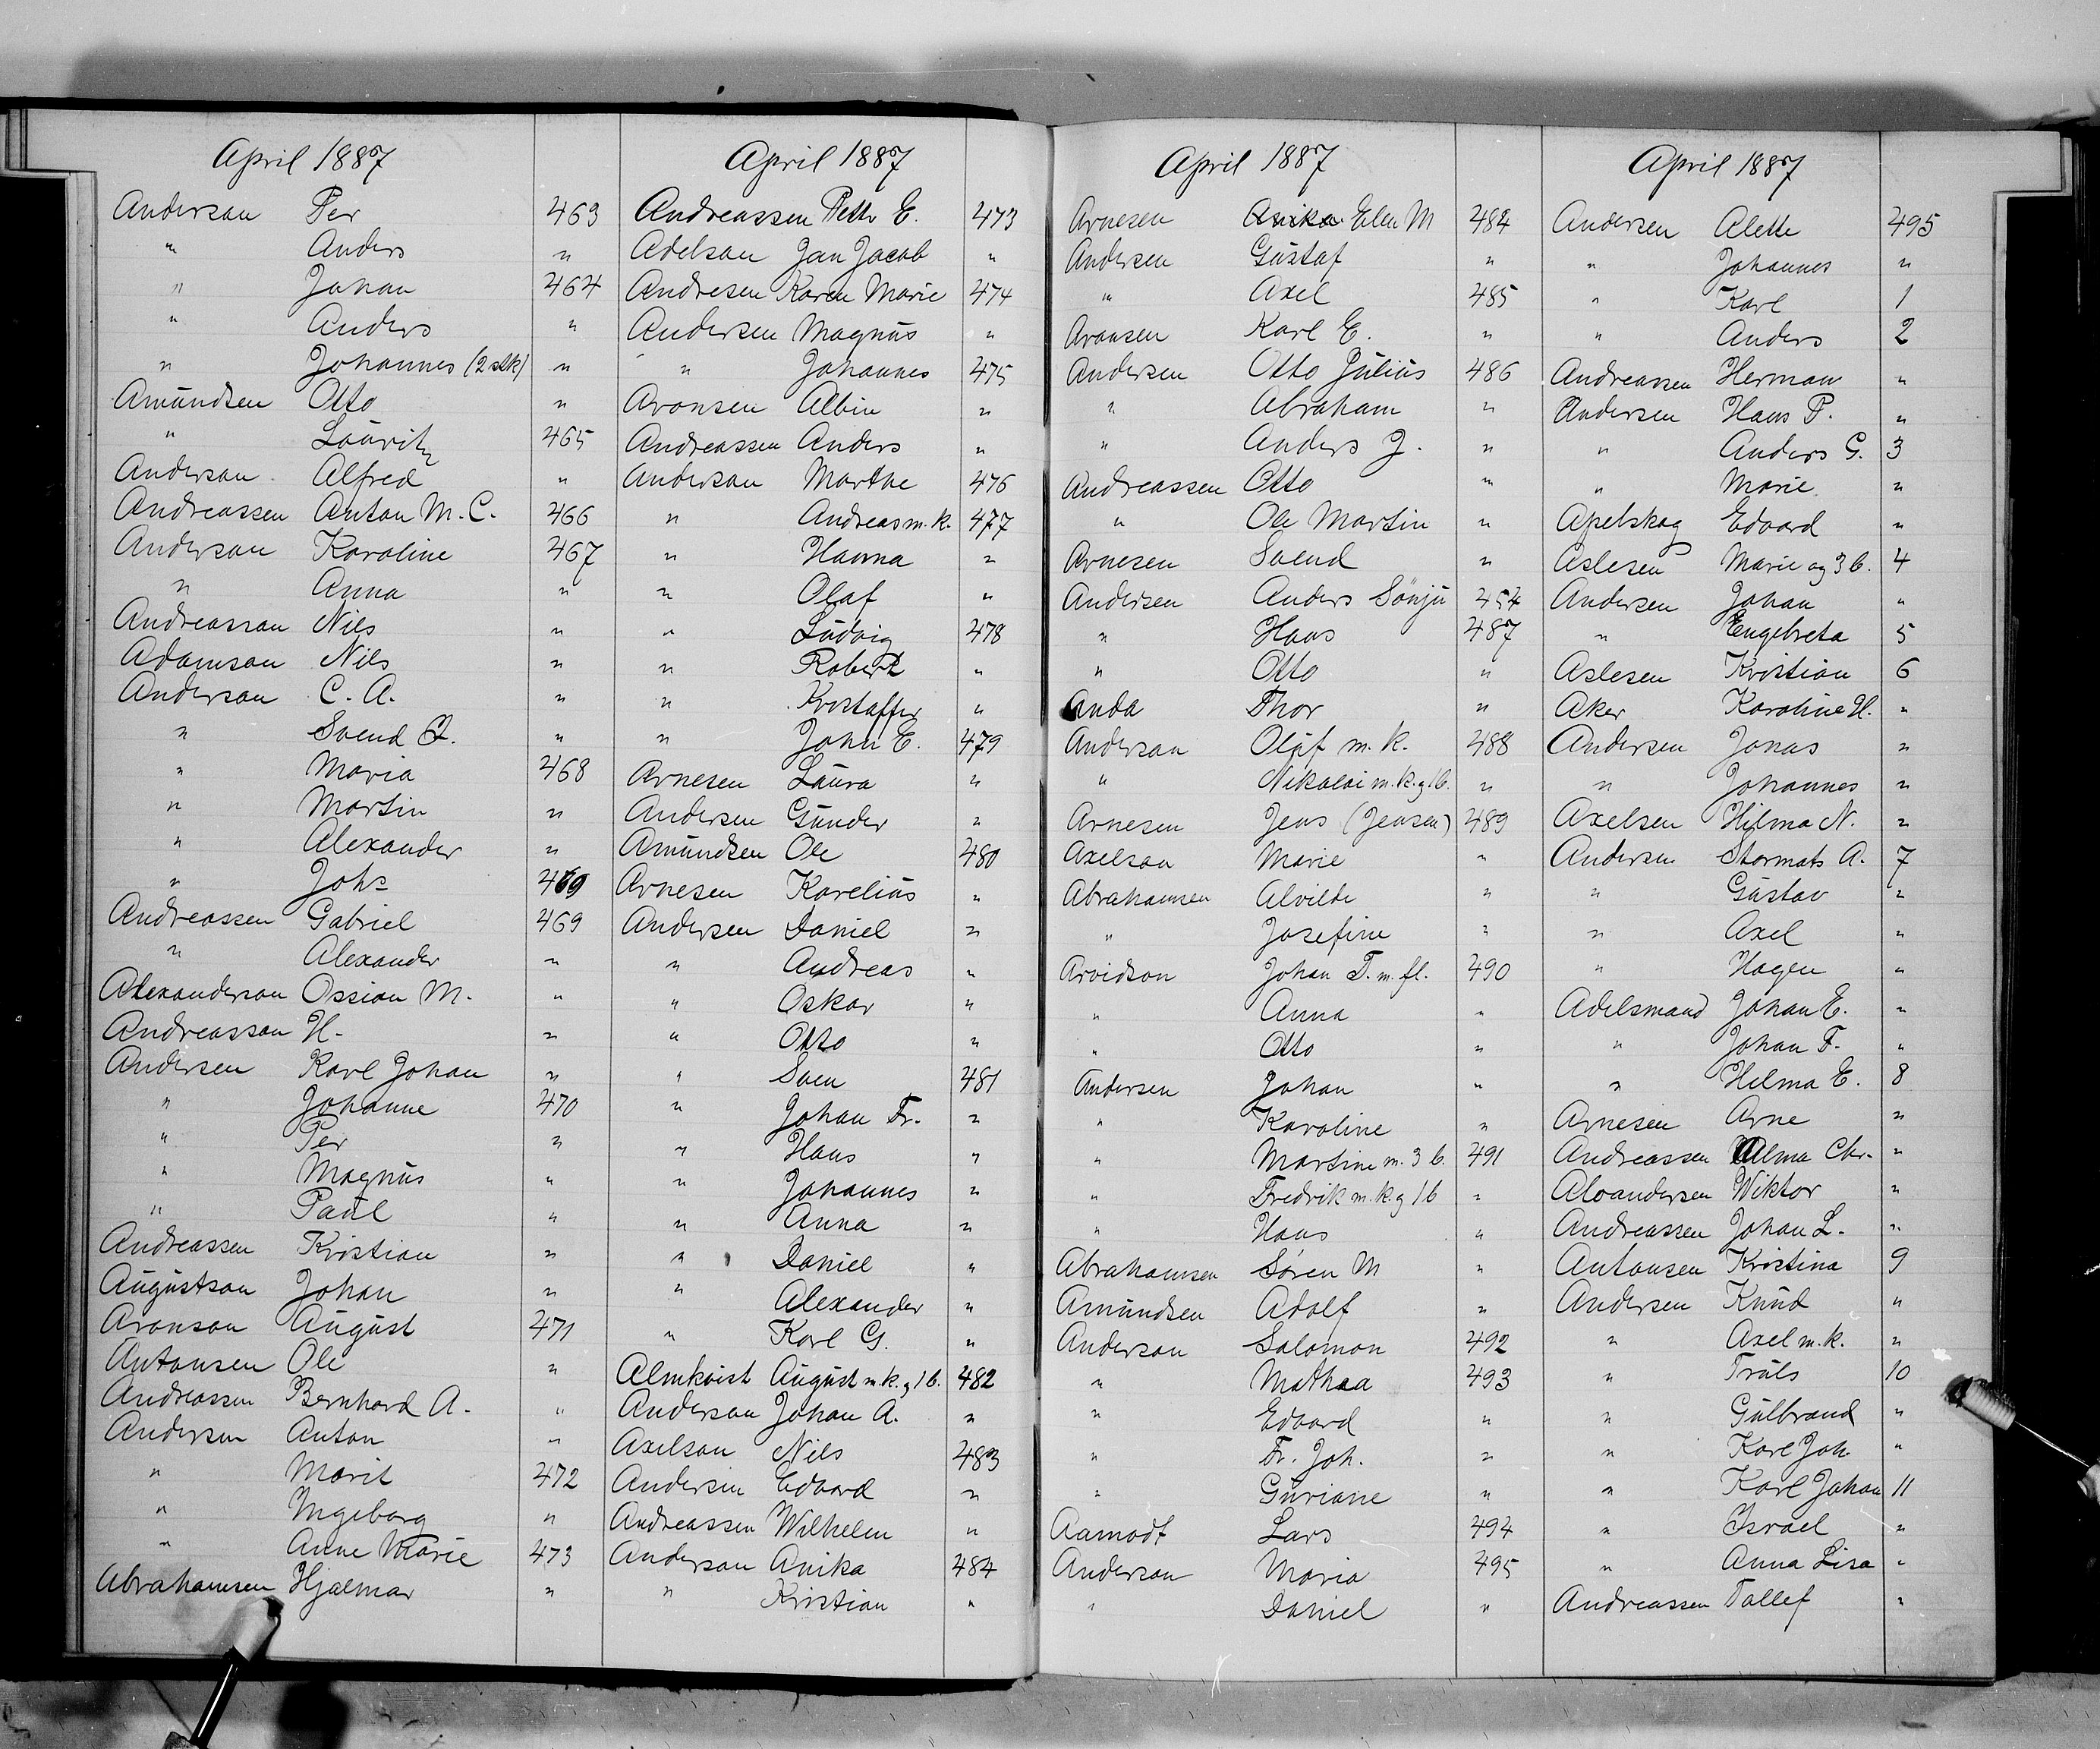 April 1887
Anderson Per 463
" Anders "
" Johan 464
" Anders "
" Johannes (2 stk) "
Amundsen Otto "
" Lauritz 465
Anderson Alfred "
Andreassen Anton M. C. 466
Anderson Karoline 467
" Anna "
Andreasson Nils "
Adamson Nils "
Anderson C. A. "
" Svend "
" Maria 468
" Martin "
" Alexander "
" Johs 469
Andreassen Gabriel 469
" Alexander "
Alexanderson Ossian M. "
Andreasson H. "
Andersen Karl Johan "
" Johanne 470
" Per "
" Magnus "
" Paul "
Andreassen Kristian "
Augustson Johan "
Aronson August 471
Antonsen Ole "
Andreassen Bernhard A. "
Andersen Anton "
" Marit 472
" Ingeborg "
" Anne Marie 473
Abrahamsen Hjalmar "
April 1887
Andreassen Pettr E. 473
Adelson Jan Jacob "
Andresen Karen Marie 474
Andersen Magnus "
" Johannes 475
Aronsen Albin "
Andreassen Anders "
Anderson Marthe 476
" Andreas m. k. 477
" Hanna "
" Olaf "
" Ludvig 478
" Robert "
" Kristoffer "
" John E. 479
Arnesen Laura "
Andersen Gunder "
Amundsen Ole 480
Arnesen Karelius "
Andersen Daniel "
" Andreas "
" Oskar "
" Otto "
" Sven 481
" Johan Fr. "
" Hans "
" Johannes "
" Anna "
" Daniel "
" Alexander "
" Karl G. "
Almkvist August m. k. g 1 b. 482
Anderson Johan A. "
Axelson Nils 483
Andersen Edvard "
Andreassen Wilhelm "
Anderson Anika 484
" Kristian "
April 1887
Arnesen Anika Elen M 484
Andersen Gustaf "
" Axel 485
Aronsen Karl E. "
Andersen Otto Julius 486
" Abraham "
" Anders J. "
Andreassen Otto "
" Ole Martin "
Arnesen Svend "
Andersen Anders Sönju 454
" Hans 487
" Otto "
Anda Thor "
Anderson Oluf m. k. 488
" Nikolai m. k. g 1 b. "
Arnesen Jens (Jensen) 489
Axelson Marie "
Abrahamsen Alvilde "
" Josefine "
Arvidson Johan T. m. fl. 490
" Anna "
" Otto "
Andersen Johan "
" Karoline "
" Martine m. 3 b. 491
" Fredrik m. k. g 1 b "
" Hans "
Abrahamsen Sören M "
Amundsen Adolf "
Anderson Salomon 492
" Mathea 493
" Edvard "
" Fr. Joh. "
" Guriane "
Aamodt Lars 494
Anderson Maria 495
" Daniel "
April 1887
Andersen Alette 495
" Johannes "
" Karl 1
" Anders 2
Andreassen Herman "
Andersen Hans P. "
" Anders G. 3
" Marie "
Apelskog Edvard "
Aslesen Marie og 3 b. 4
Andersen Johan "
" Engebreta 5
Aslesen Kristian 6
Aker Karoline H. "
Andersen Jonas "
" Johannes "
Axelsen Hilma N. "
Andersen Stormats A. 7
" Gustav "
" Axel "
" Hagen "
Adelsmand Johan E. "
" Johan F. "
" Hilma E. 8
Arnesen Arne "
Andreassen Alma Chr. "
Aloandersen Wiktor "
Andreassen Johan L. "
Antonsen Kristina 9
Andersen Knud "
" Axel m. k. "
" Truls 10
" Gulbrand "
" Karl Joh. "
" Karl Johan 11
" Israel "
" Anna Lisa "
Andreassen Tallef "